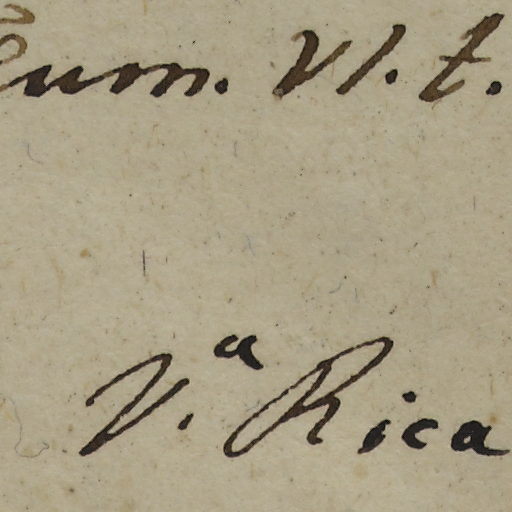 um. Vl. t.
V.ª Rica